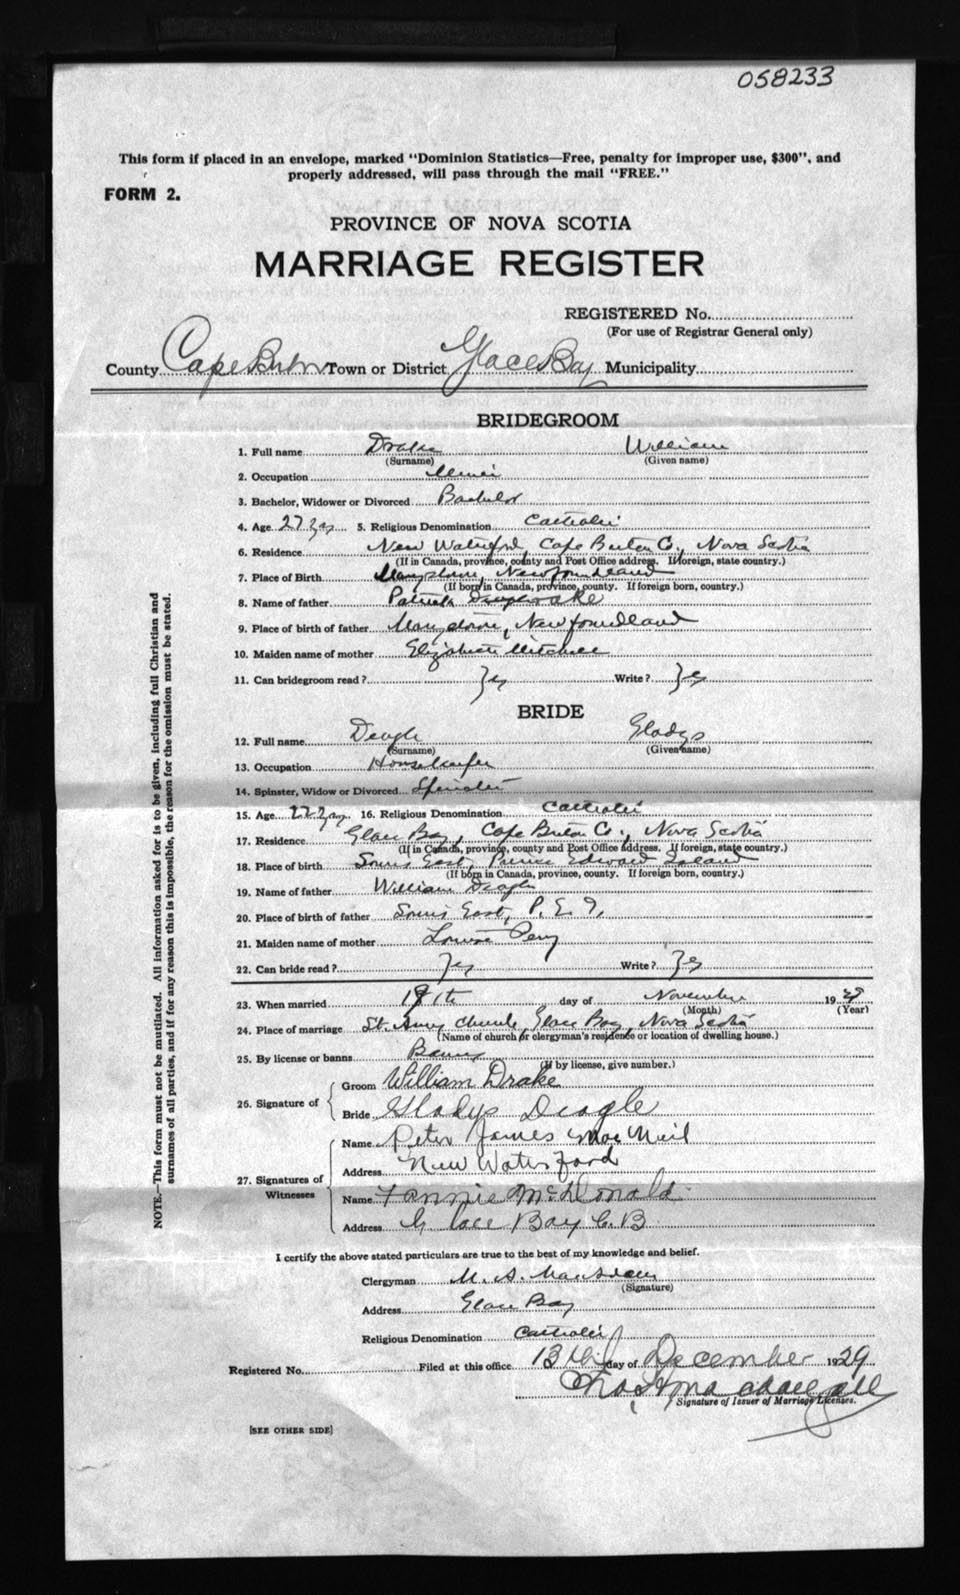 058233
This form if placed in an envelope, marked "Dominion Statistics—Free, penalty for improper use, $300", and
properly addressed, will pass through the mail "FREE."
FORM 2.
PROVINCE OF NOVA SCOTIA
MARRIAGE REGISTER
REGISTERED No.
(For use of Registrar General only)
County Cape Breton Town or District Glace Bay Municipality
BRIDEGROOM
1. Full name Drake William
(Surname) (Given name)
2. Occupation Miner
3. Bachelor, Widower or Divorced Bachelor
4. Age 27 yrs 5. Religious Denomination Catholic
6. Residence New Waterford, Cape Breton Co., Nova Scotia
(If in Canada, province, county and Post Office address. If foreign, state country.)
7. Place of Birth Newfoundland
(If born in Canada, province, county. If foreign born, country.)
8. Name of father Patrick Drake
9. Place of birth of father Newfoundland
10. Maiden name of mother Elizabeth Mitchell
11. Can bridegroom read? Yes Write? Yes
BRIDE
12. Full name Deagle Gladys
(Surname) (Given name)
13. Occupation Housekeeper
14. Spinster, Widow or Divorced Spinster
15. Age 22 yrs 16. Religious Denomination Catholic
17. Residence Glace Bay, Cape Breton Co., Nova Scotia
(If in Canada, province, county and Post Office address. If foreign, state country.)
18. Place of birth Souris East, Prince Edward Island
(If born in Canada, province, county. If foreign born, country.)
19. Name of father William Deagle
20. Place of birth of father Souris East, P.E.I.
21. Maiden name of mother Louise Perry
22. Can bride read? Yes Write? Yes
23. When married day of November 1929
(Month) (Year)
24. Place of marriage St. Anns Church, Glace Bay, Nova Scotia
(Name of church or clergyman's residence or location of dwelling house.)
25. By license or banns Banns
(If by license, give number.)
26. Signature of
Groom William Drake
Bride Gladys Deagle
27. Signatures of Witnesses
Name Peter James MacNeil
Address New Waterford
Name Fannie McDonald
Address Glace Bay C.B
I certify the above stated particulars are true to the best of my knowledge and belief.
Clergyman M. A.
(Signature)
Address Glace Bay
Religious Denomination Catholic
Registered No. Filed at this office 13th day of December 1929
Signature of Issuer of Marriage Licenses.
[SEE OTHER SIDE]
NOTE.—This form must not be mutilated. All information asked for is to be given, including full Christian and
surnames of all parties, and if for any reason this is impossible, the reason for the omission must be stated.